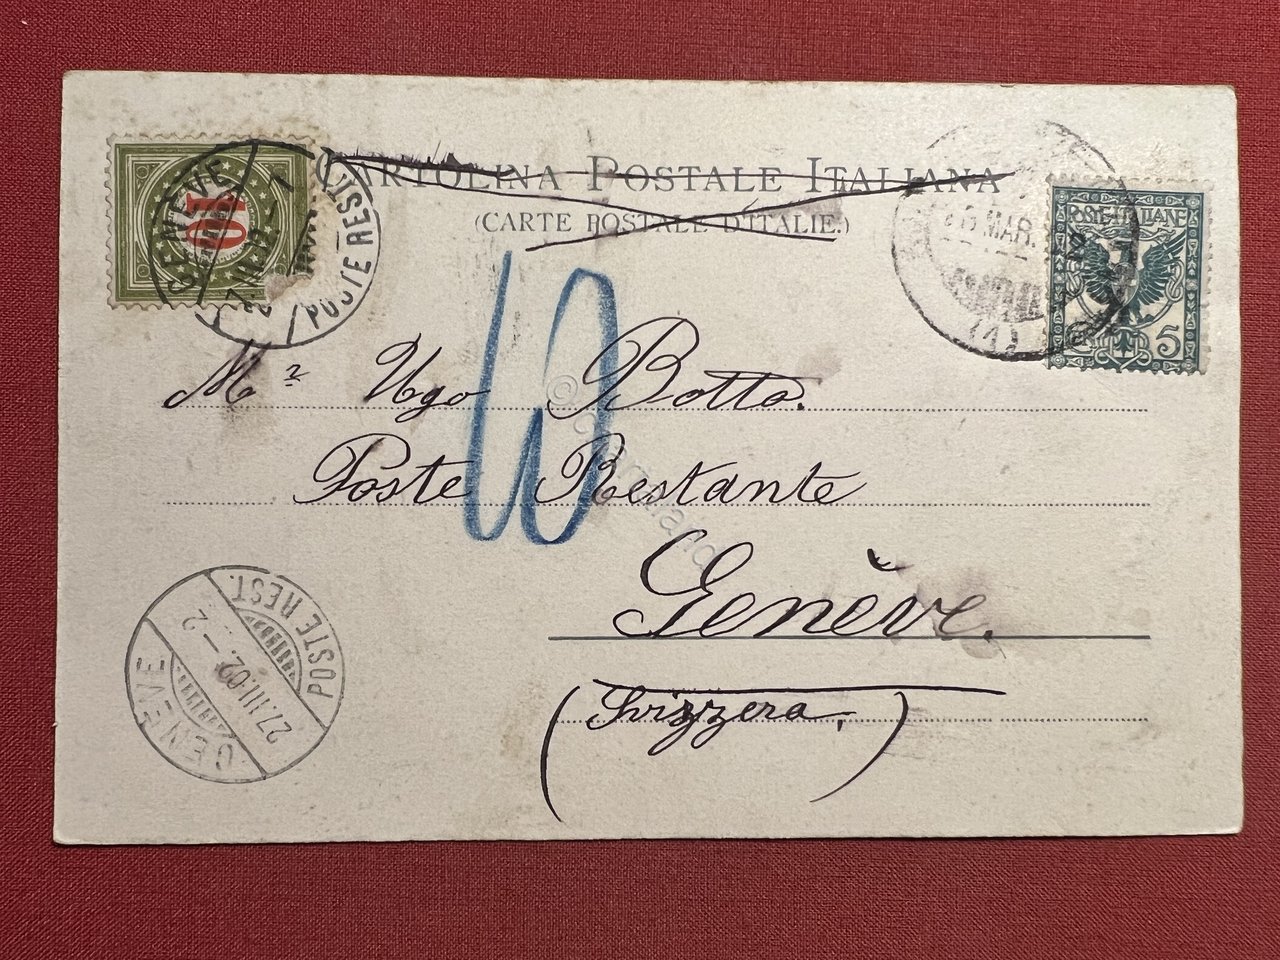 CARTOLINA POSTALE ITALIANA
(CARTE POSTALE D'ITALIE.)
10
GENÈVE
POSTE REST.
POSTE ITALIANE
5
MAR.
(4)
10
Mr Ugo Botto.
Poste Restante
Genève.
(Svizzera,)
GENÈVE
27.III.02.–2
POSTE REST.